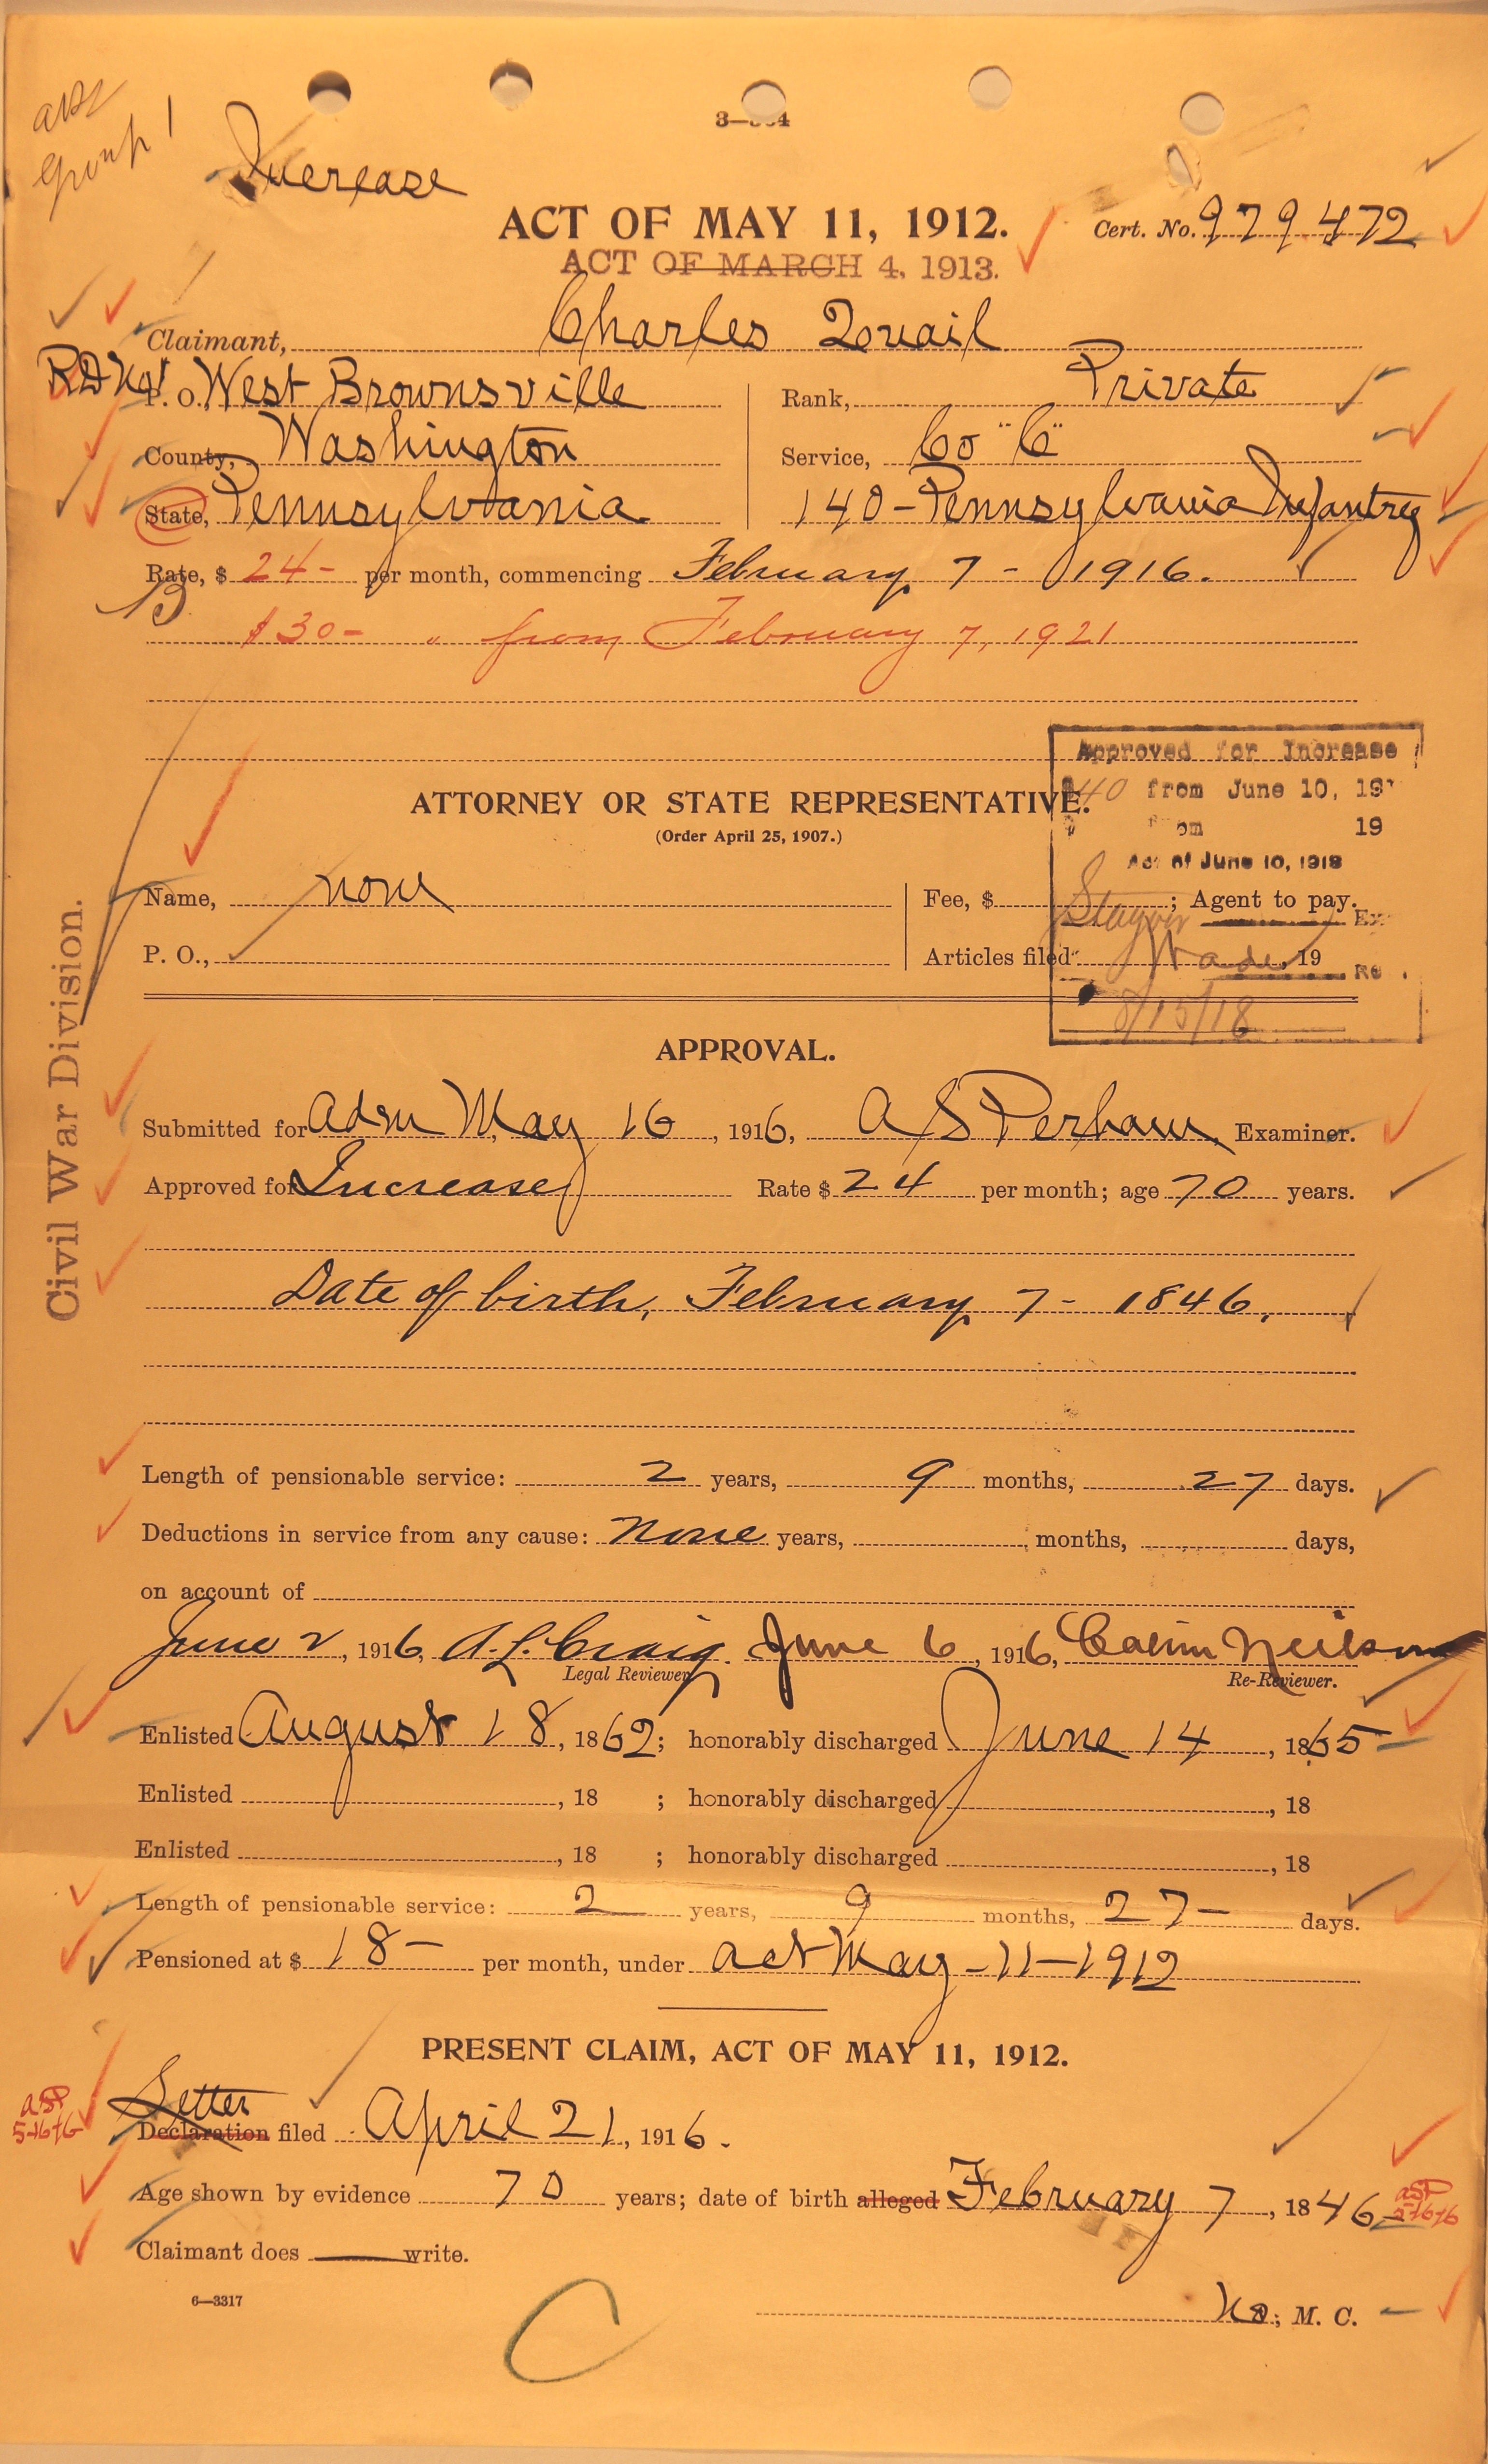 Group 1
3—
Increase
ACT OF MAY 11, 1912.
Cert. No. 979472
ACT OF MARCH 4, 1913.
Claimant, Charles Quail
RD No 1
P. O. West Brownsville
Rank, Private
County, Washington
Service, Co "C"
State, Pennsylvania
140 - Pennsylvania Infantry
Rate, $ 24- per month, commencing February 7 - 1916.
B
$30- " from February 7, 1921
Approved for Increase
$40 from June 10, 19
19
Act of June 10, 1918
8/15/18
ATTORNEY OR STATE REPRESENTATIVE.
(Order April 25, 1907.)
Name, none
Fee, $ ; Agent to pay.
P. O.,
Articles filed Wade, 19
Civil War Division.
APPROVAL.
Submitted for Adm May 16, 1916, A S Perham, Examiner.
Approved for Increase Rate $ 24 per month; age 70 years.
Date of birth, February 7 - 1846.
Length of pensionable service: 2 years, 9 months, 27 days.
Deductions in service from any cause: None years, months, days,
on account of
June 2, 1916, A. L. Craig. June 6, 1916, Neilson
Legal Reviewer. Re-Reviewer.
Enlisted August 18, 1862; honorably discharged June 14, 1865
Enlisted , 18 ; honorably discharged , 18
Enlisted , 18 ; honorably discharged , 18
Length of pensionable service: 2 years, 9 months, 27- days.
Pensioned at $ 18- per month, under act May-11-1912
PRESENT CLAIM, ACT OF MAY 11, 1912.
Letter
ASP
5-16-16
Declaration filed April 21, 1916.
Age shown by evidence 70 years; date of birth alleged February 7, 1846
ASP
5-16-16
Claimant does write.
6—3317
No; M. C.
C